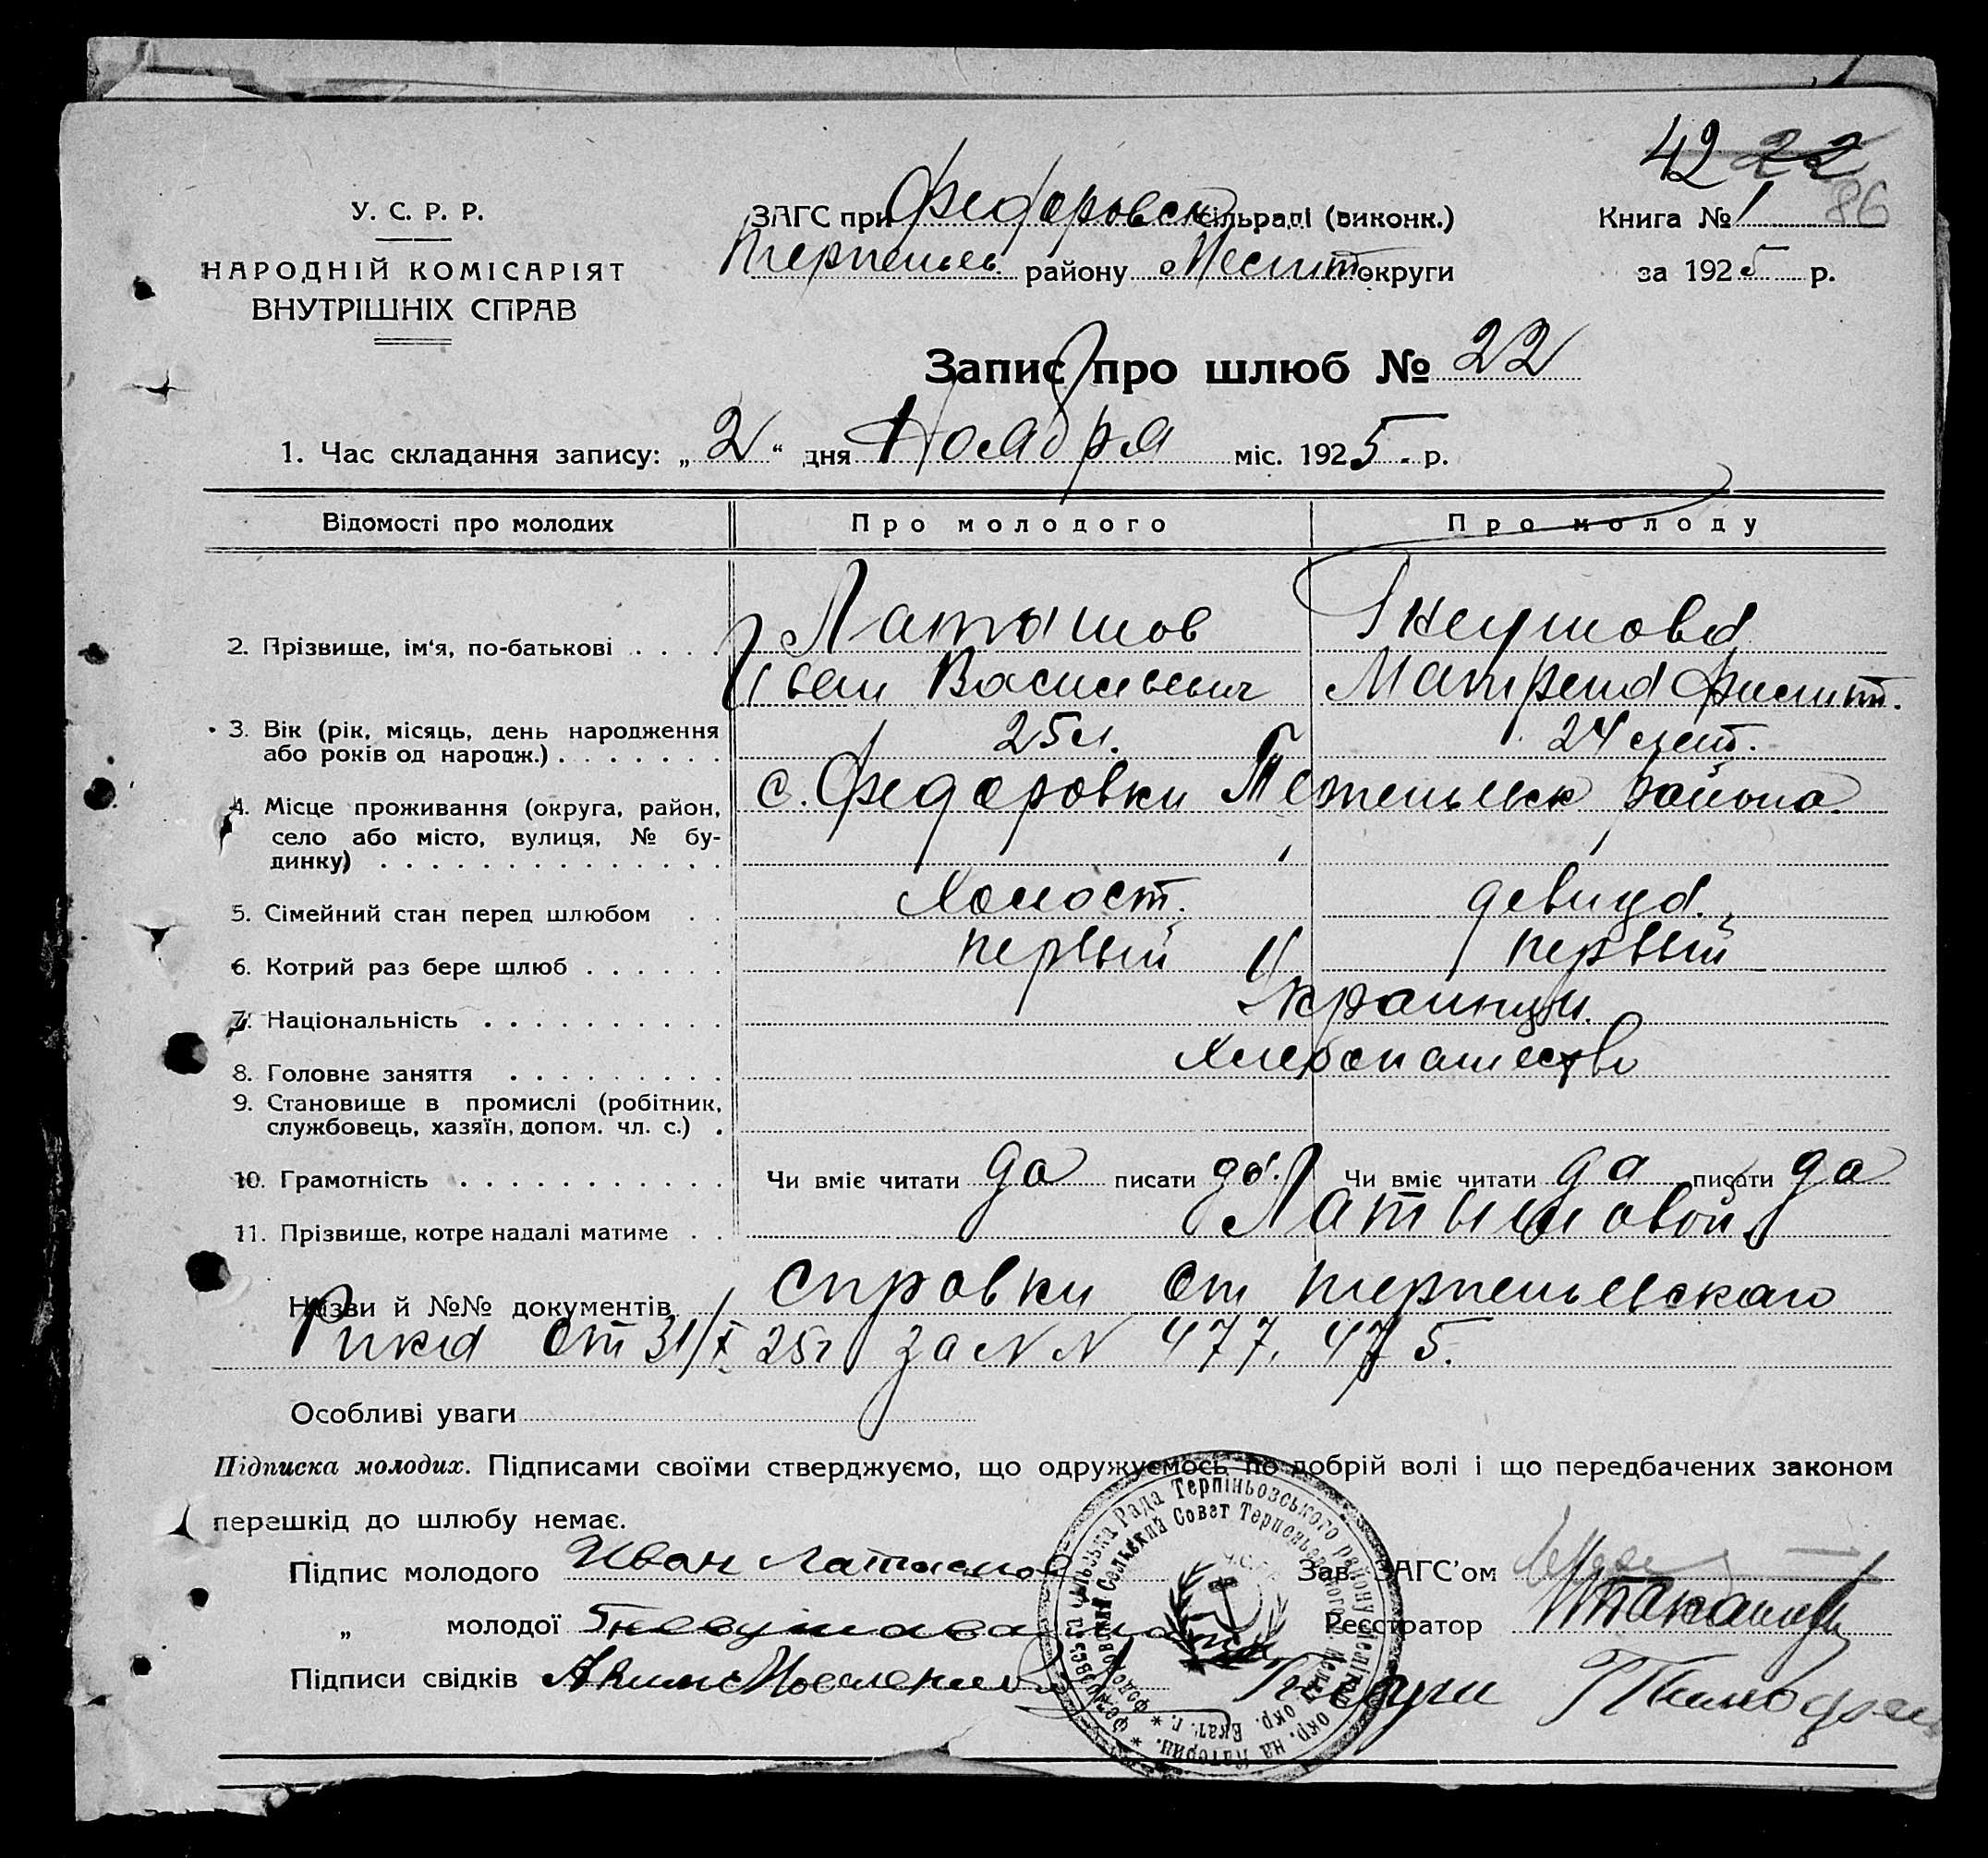 42 22
86
У. С. Р. Р.
НАРОДНІЙ КОМІСАРІЯТ
ВНУТРІШНІХ СПРАВ
ЗАГС при Федоровск сільраді (виконк.)
Терпеньев. району Мелит округи
Книга № 1
за 1925 р.
Запис про шлюб № 22
1. Час складання запису: „2“ дня Ноября міс. 1925. р.
Відомості про молодих
Про молодого
Про молоду
2. Прізвище, ім'я, по-батькові
Латышов
Иван Васильевич
Матрена Филип.
3. Вік (рік, місяць, день народження
або років од народж.)
25 л.
24 лет.
4. Місце проживання (округа, район,
село або місто, вулиця, № бу-
динку)
с. Федоровки района
5. Сімейний стан перед шлюбом
Холост.
девица.
6. Котрий раз бере шлюб
первый
первый
7. Національність
Украинцы.
8. Головне заняття
хлебопашество
9. Становище в промислі (робітник,
службовець, хазяїн, допом. чл. с.)
10. Грамотність
Чи вміє читати да писати да.
Чи вміє читати да писати да
11. Прізвище, котре надалі матиме
Латышовой
Назви й №№ документів справки от терпеньевскаго
Рика от 31/X 25 г за NN 477, 475.
Особливі уваги
Підписка молодих. Підписами своїми стверджуємо, що одружуємось по добрій волі і що передбачених законом
перешкід до шлюбу немає.
Підпис молодого Иван Латышов
„ молодої
Підписи свідків
Зав. ЗАГС'ом
Реєстратор
Рада Терпіньовського району
Сельский Совет